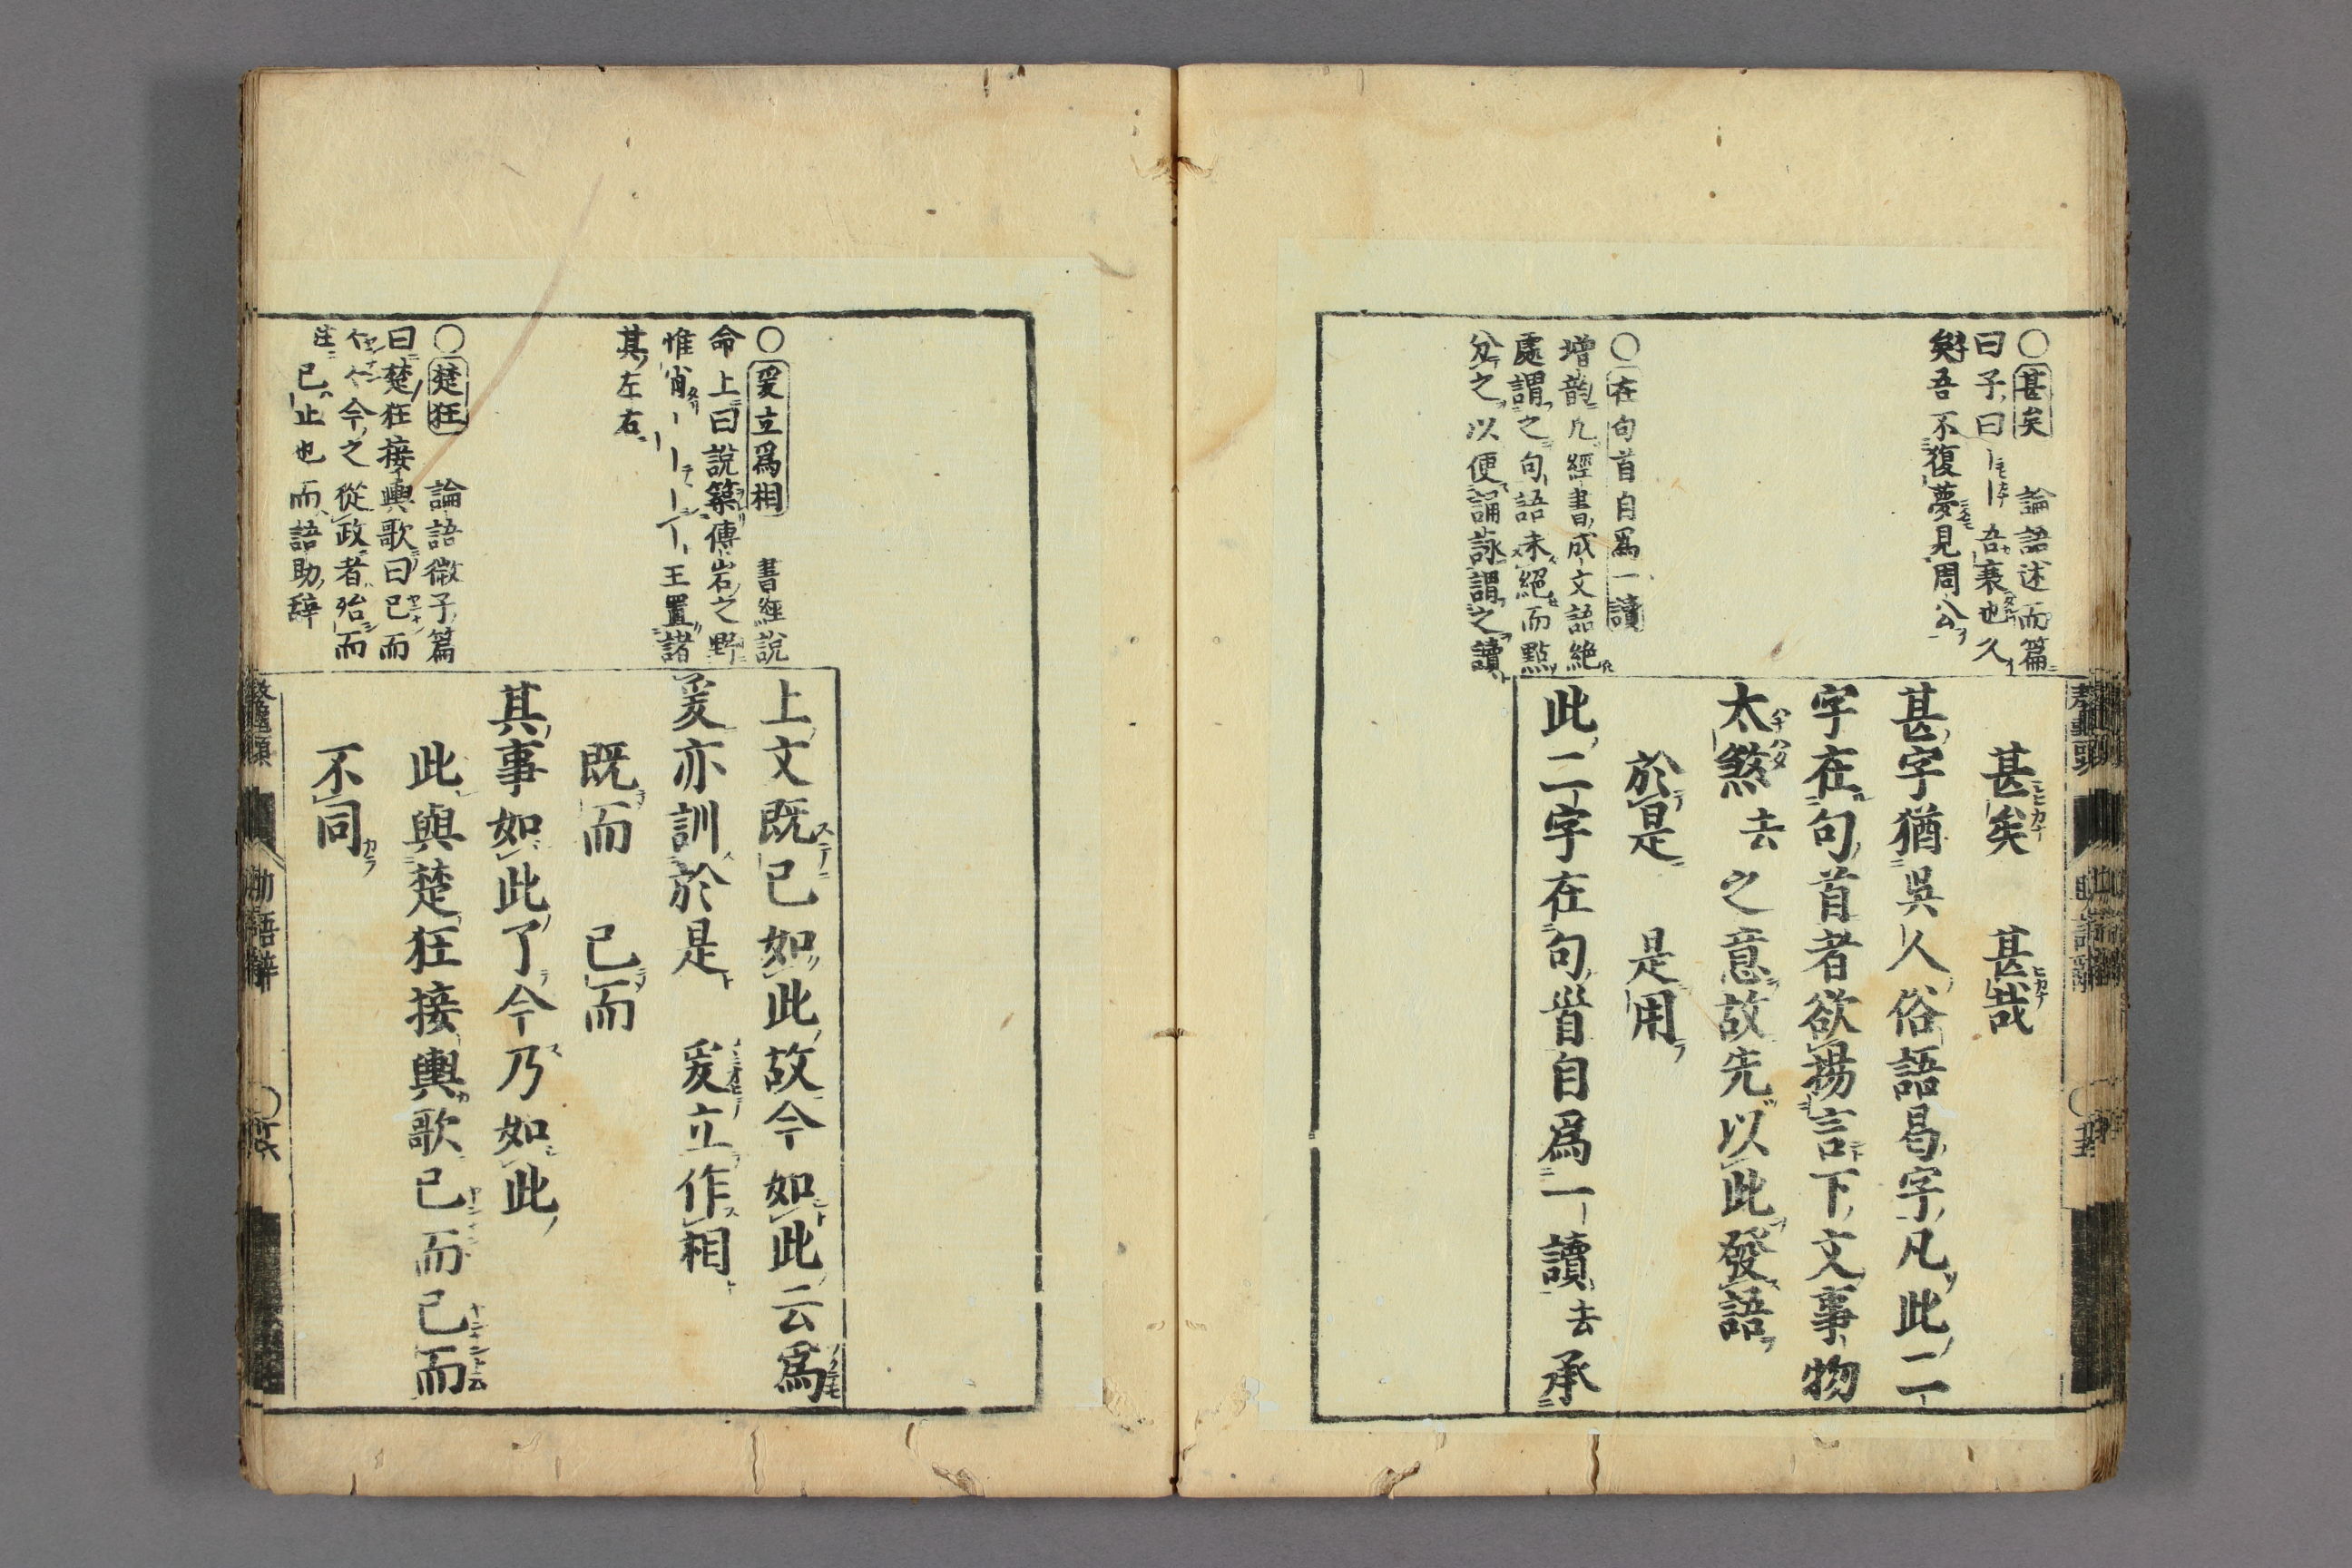 ○甚矣 論語述而篇
曰子曰 吾衰也久
矣吾不復夢見周公
○在句首自爲一讀
增韻凡經書成文語絶
處謂之句語未絕而點
分之以便誦詠謂之讀
甚矣 甚哉
甚字猶吳人俗語曷字凡此二
字在句首者欲揚言下文事物
太煞去之意故先以此發語
於是 是用
此二字在句首自爲一讀去承
○爰立爲相 書經說
命上曰說築傅岩之野
惟肖 王置諸
其左右
○楚狂 論語微子篇
曰楚狂接輿歌曰已而
今之從政者殆而
註 已止也而語助辭
上文既已如此故今如此云爲
爰亦訓於是 爰立作相
既而 已而
其事如此了今乃如此
此與楚狂接輿歌已而已而
不同